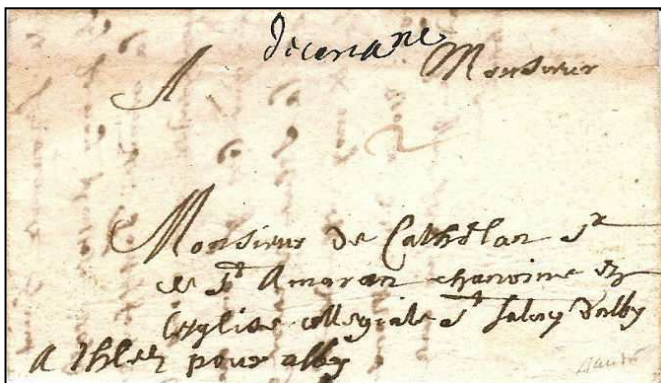 A Monsieur
2
Monsieur de Catholan Sr
de St Amaran chanoine en
l'esglise collegiale St Salvy d'alby
A Thlez pour alby